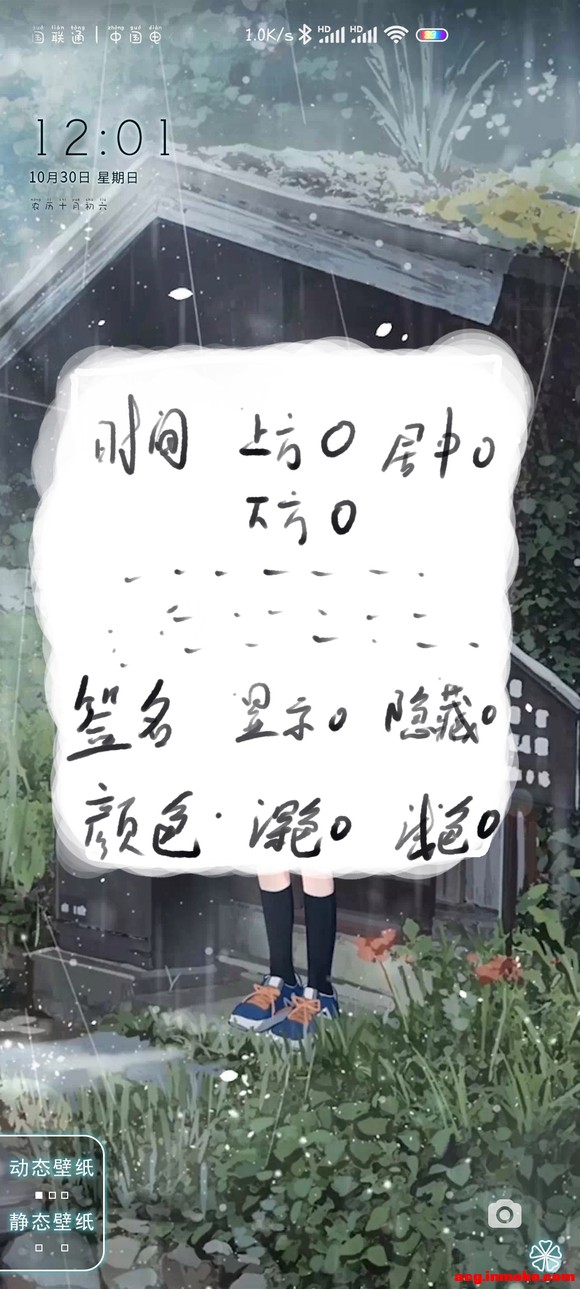 国联通 | 中国电
1.0K/s HD HD
12:01
10月30日 星期日
农历十月初六
时间 上方O 居中O
下方O
签名 显示O 隐藏O
颜色 · 深色O 浅色O
动态壁纸
静态壁纸
acg.inmoke.com